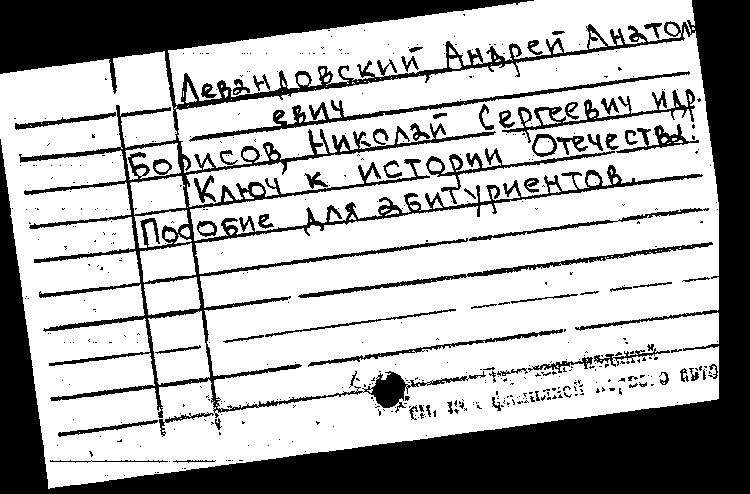 Левандовский, Андрей Анатоль
евич
Борисов, Николай Сергеевич и др.
Ключ к истории Отечества:
Пособие для абитуриентов.
см. под фамилией первого авто